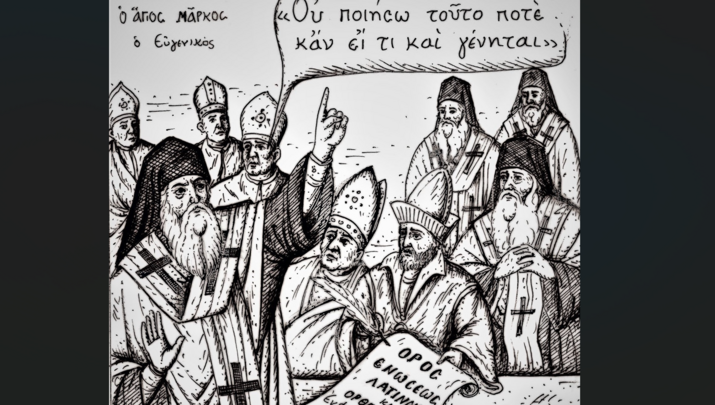 ὁ ἅγιος Μᾶρκος
ὁ Εὐγενικός
«Οὐ ποιήσω τοῦτο ποτὲ
κἄν εἴ τι καὶ γένηται»
ΟΡΟΣ
ΕΝΩΣΕΩΣ
ΛΑΤΙΝΩ